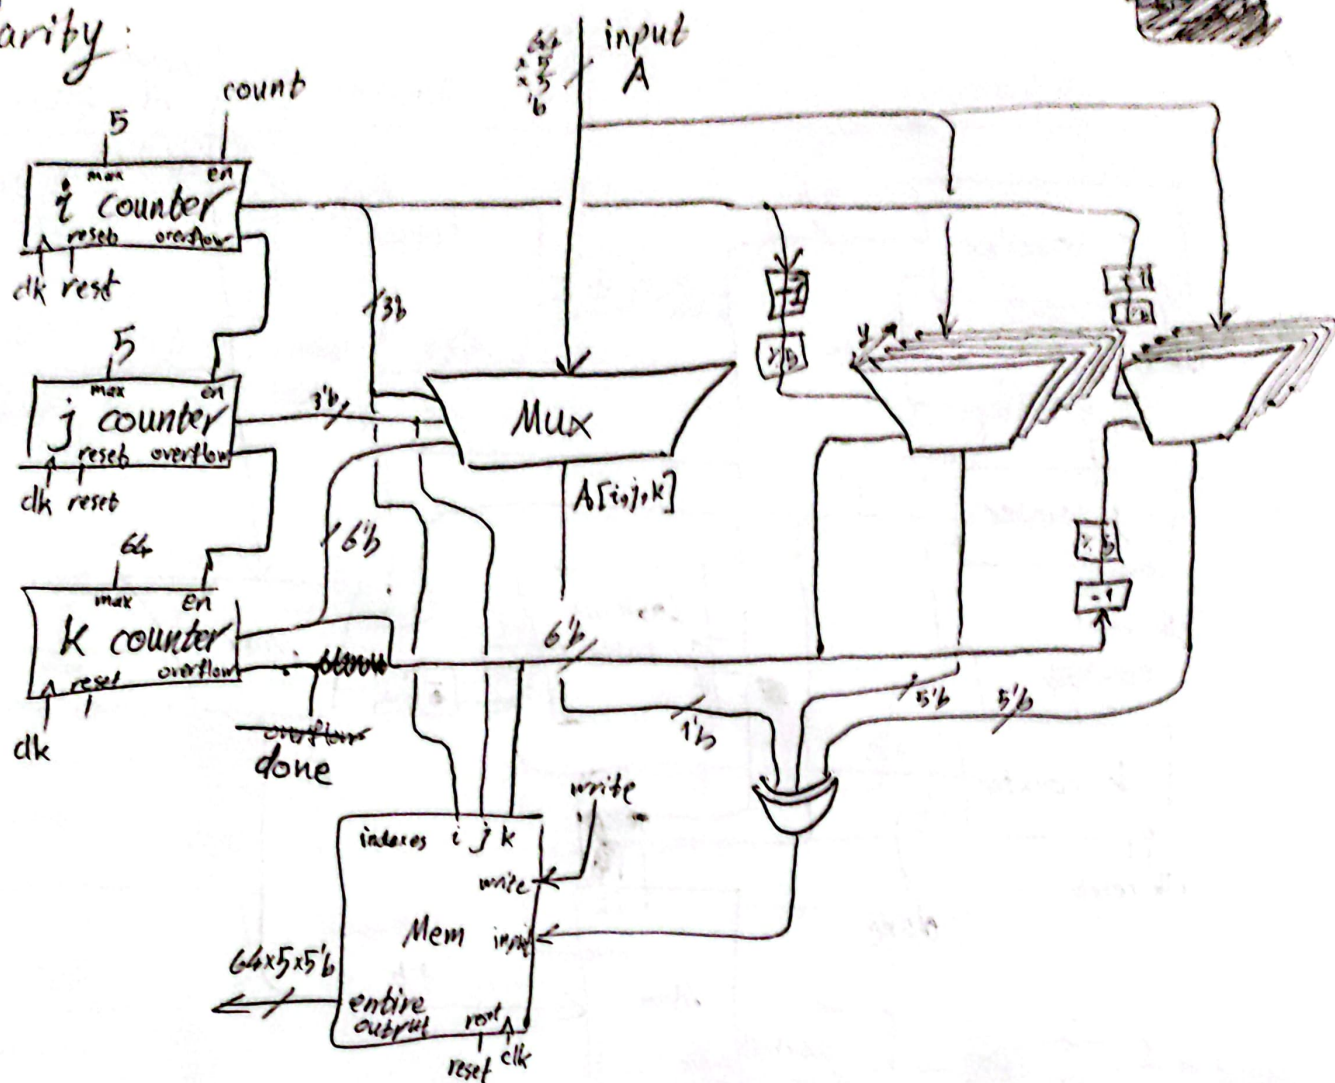 arity:
count
5
max en
i counter
reset overflow
clk reset
5
max en
j counter
reset overflow
clk reset
64
max en
k counter
reset overflow
clk
done
64
×5
×5
'b
input
A
3b
3'b
6'b
Mux
A[i,j,k]
-1
%5
y
%5
-1
6'b
1'b
5'b
5'b
write
indexes i j k
write
Mem input
64×5×5'b
entire
output
reset
reset clk